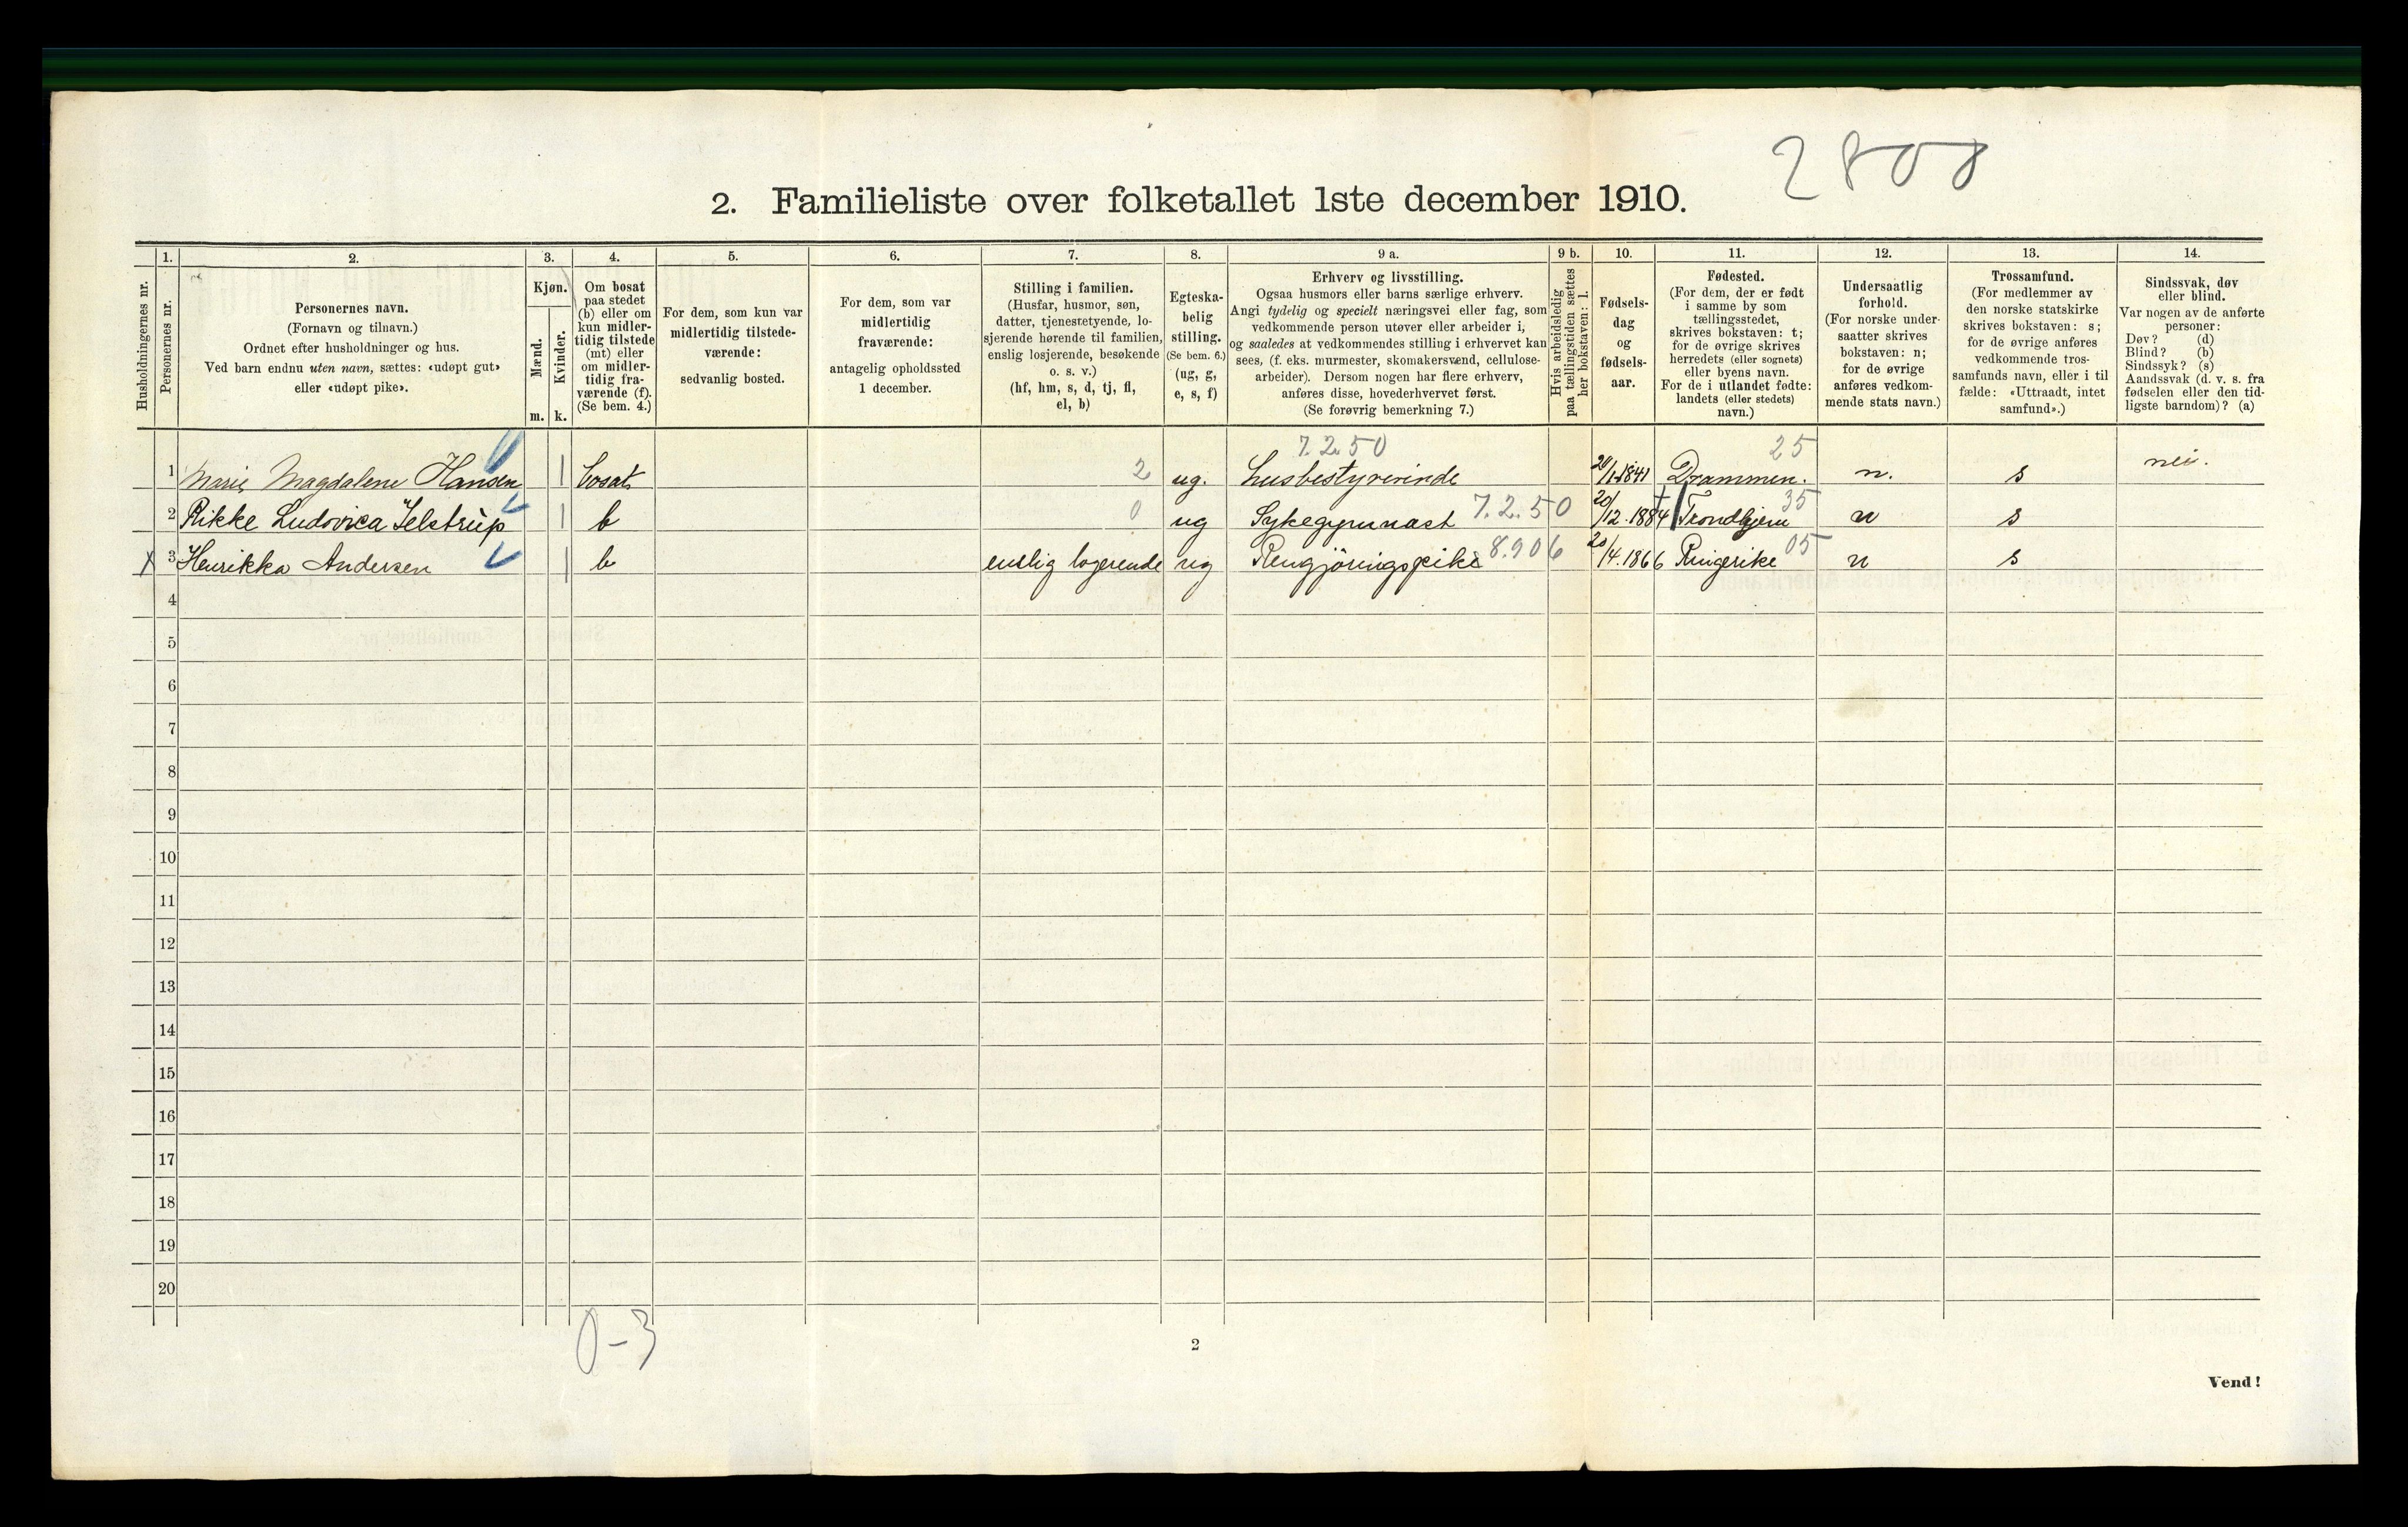 2808
2. Familieliste over folketallet 1ste december 1910.
Husholdningernes nr.
1.
Personernes nr.
2.
Personernes navn.
(Fornavn og tilnavn.)
Ordnet efter husholdninger og hus.
Ved barn endnu uten navn, sættes: «udøpt gut»
eller «udøpt pike».
3.
Kjøn.
Mænd.
m.
Kvinder.
k.
4.
Om bosat
paa stedet
(b) eller om
kun midler-
tidig tilstede
(mt) eller
om midler-
tidig fra-
værende (f).
(Se bem. 4.)
5.
For dem, som kun var
midlertidig tilstede-
værende:
sedvanlig bosted.
6.
For dem, som var
midlertidig
fraværende:
antagelig opholdssted
1 december.
7.
Stilling i familien.
(Husfar, husmor, søn,
datter, tjenestetyende, lo-
sjerende hørende til familien,
enslig losjerende, besøkende
o. s. v.)
(hf, hm, s, d, tj, fl,
el, b)
8.
Egteska-
belig
stilling.
(Se bem. 6.)
(ug, g,
e, s, f)
9 a.
Erhverv og livsstilling.
Ogsaa husmors eller barns særlige erhverv.
Angi tydelig og specielt næringsvei eller fag, som
vedkommende person utøver eller arbeider i,
og saaledes at vedkommendes stilling i erhvervet kan
sees, (f. eks. murmester, skomakersvend, cellulose-
arbeider). Dersom nogen har flere erhverv,
anføres disse, hovederhvervet først.
(Se forøvrig bemerkning 7.)
9 b.
Hvis arbeidsledig
paa tællingstiden sættes
her bokstaven: l.
10.
Fødsels-
dag
og
fødsels-
aar.
11.
Fødested.
(For dem, der er født
i samme by som
tællingsstedet,
skrives bokstaven: t;
for de øvrige skrives
herredets (eller sognets)
eller byens navn.
For de i utlandet fødte:
landets (eller stedets)
navn.)
12.
Undersaatlig
forhold.
(For norske under-
saatter skrives
bokstaven: n;
for de øvrige
anføres vedkom-
mende stats navn.)
13.
Trossamfund.
(For medlemmer av
den norske statskirke
skrives bokstaven: s;
for de øvrige anføres
vedkommende tros-
samfunds navn, eller i til-
fælde: «Uttraadt, intet
samfund».)
14.
Sindssvak, døv
eller blind.
Var nogen av de anførte
personer:
Døv? (d)
Blind? (b)
Sindssyk? (s)
Aandssvak (d. v. s. fra
fødselen eller den tid-
ligste barndom)? (a)
7.2.50 25
1 Marie Magdalene Hansen 1 bosat 2 ug. husbestyrerinde 1841 Drammen. n. s nei.
2 Rikke Ludovica Jelstrup 1 b 0 ug Sykegymnast 7.2.50 20/12.1884 Trondhjem 35 n s
X 3 Henrikka Andersen 1 b enslig logerende ug Rengjöringspike 8.906 20/4.1866 Ringerike 05 n s
4
5
6
7
8
9
10
11
12
13
14
15
16
17
18
19
20
0-3
2
Vend!